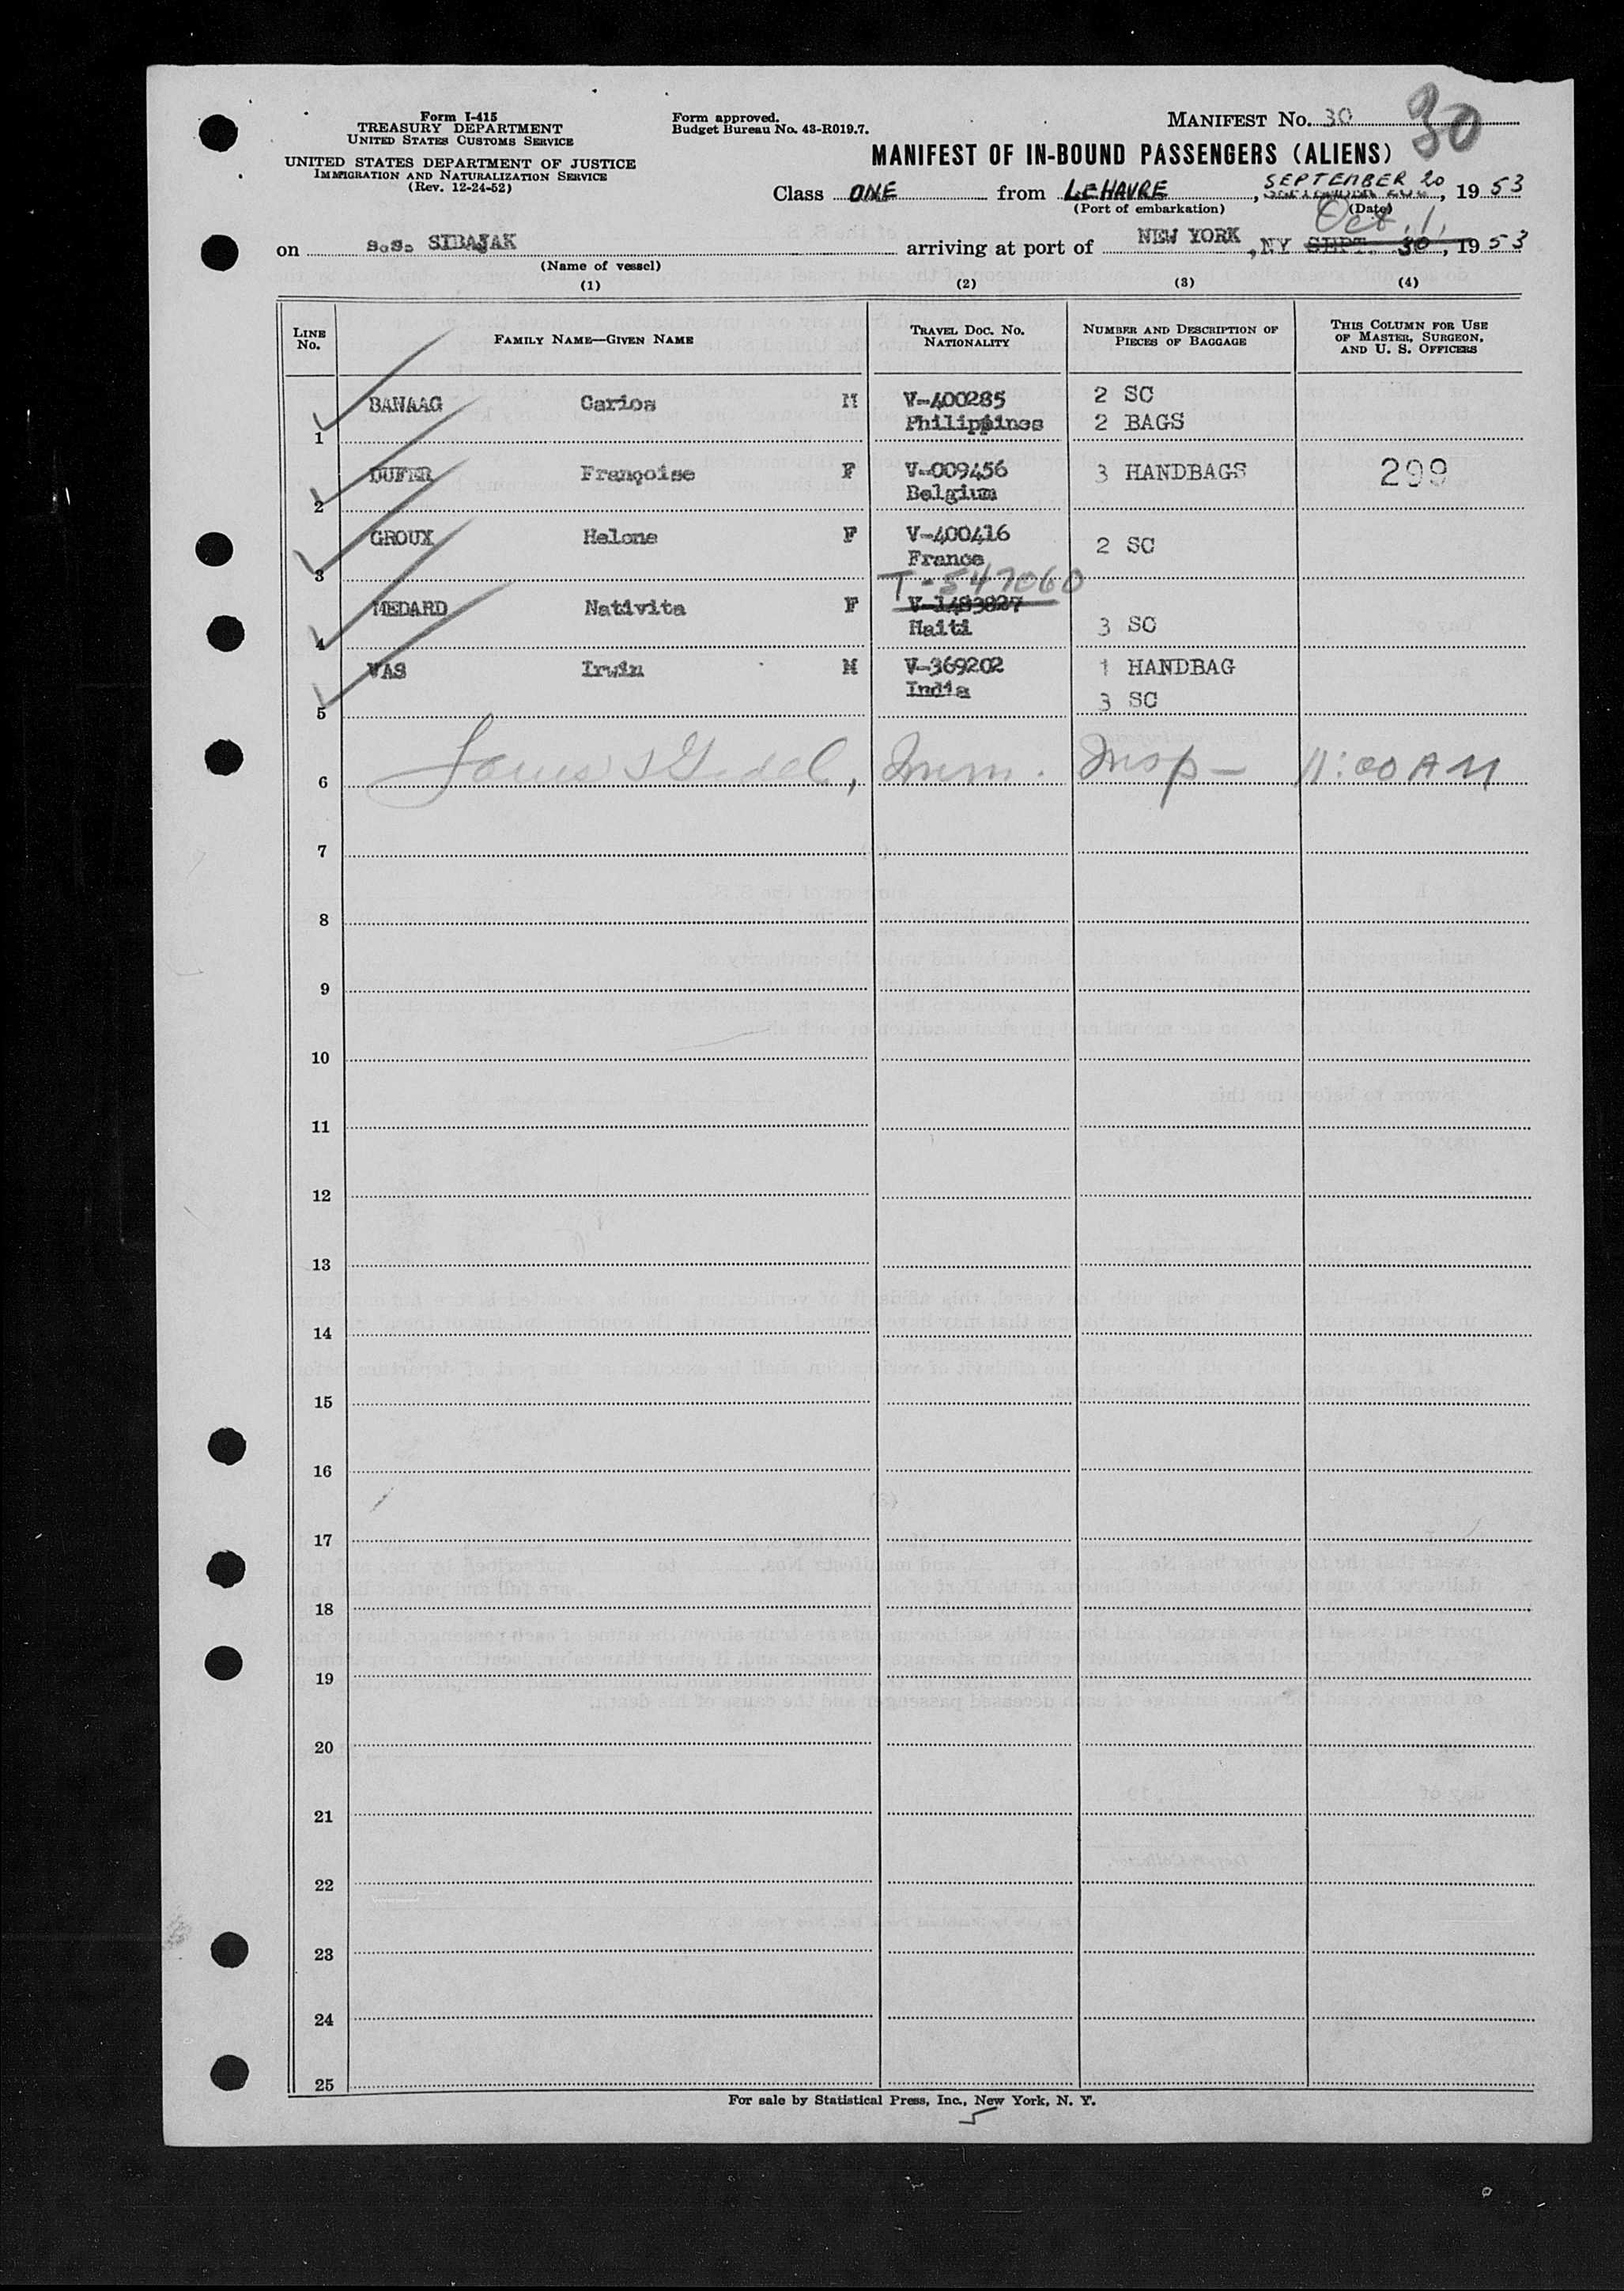 Form I-415
TREASURY DEPARTMENT
UNITED STATES CUSTOMS SERVICE
UNITED STATES DEPARTMENT OF JUSTICE
IMMIGRATION AND NATURALIZATION SERVICE
(Rev. 12-24-52)
Form approved.
Budget Bureau No. 43-R019.7.
MANIFEST No. 30 30
MANIFEST OF IN-BOUND PASSENGERS (ALIENS)
Class ONE from LEHAVRE, SEPTEMBER 20, 1953
(Port of embarkation) (Date)
Oct. 1,
on s.s. SIBAJAK arriving at port of NEW YORK, NY SEPT. 30, 1953
(Name of vessel)
(1) (2) (3) (4)
LINE No. FAMILY NAME—GIVEN NAME TRAVEL DOC. NO. NATIONALITY NUMBER AND DESCRIPTION OF PIECES OF BAGGAGE THIS COLUMN FOR USE OF MASTER, SURGEON, AND U. S. OFFICERS
BANAAG Carlos M V-400285 2 SC
1 Philippines 2 BAGS
DUFER Françoise F V-009456 3 HANDBAGS 299
2 Belgium
GROUX Helene F V-400416 2 SC
3 France
T-547060
MEDARD Nativita F V-1483827
4 Haiti 3 SC
VAS Irwin M V-369202 1 HANDBAG
5 India 3 SC
6 Imm. Insp- 11:00 AM
7
8
9
10
11
12
13
14
15
16
17
18
19
20
21
22
23
24
25
For sale by Statistical Press, Inc., New York, N. Y.
5